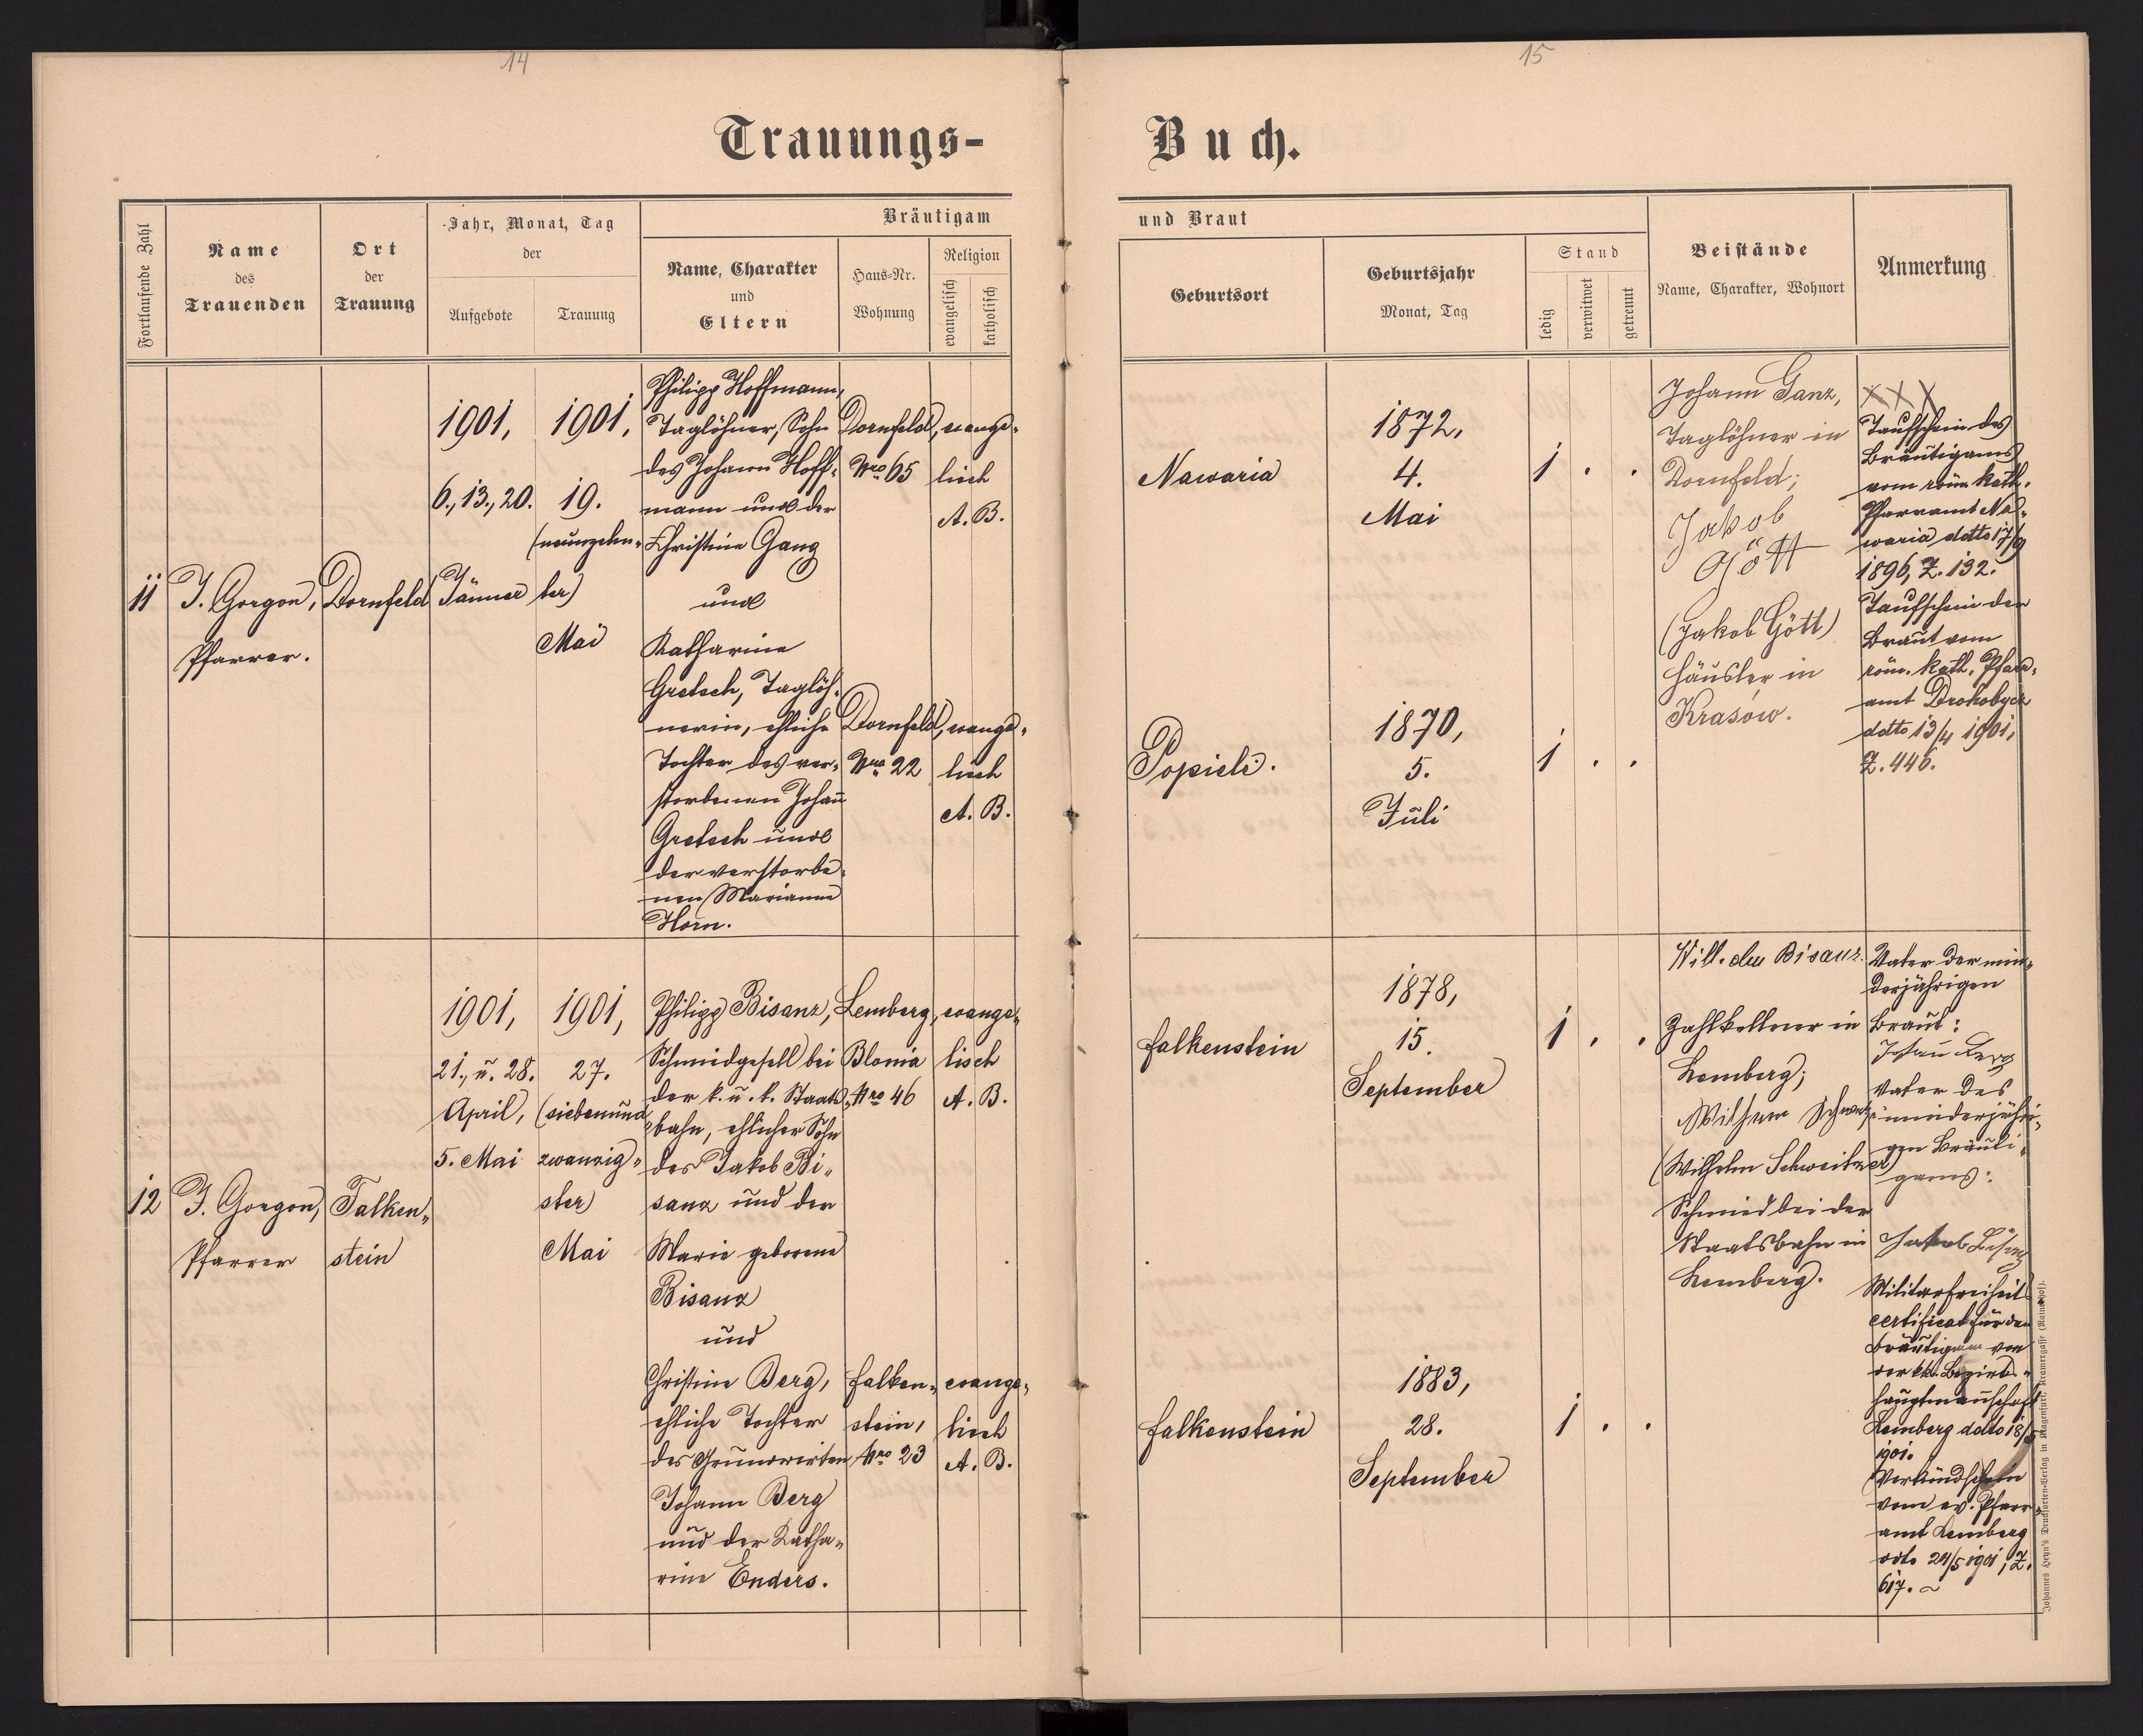 14
15
Trauungs-
Buch.
Fortlaufende Zahl
Name
des
Trauenden
Ort
der
Trauung
Jahr, Monat, Tag
der
Aufgebote
Trauung
Bräutigam
Name, Charakter
und
Eltern
Haus=Nr.
Wohnung
Religion
evangelisch
katholisch
und Braut
Geburtsort
Geburtsjahr
Monat, Tag
Stand
ledig
verwitwet
getrennt
Beistände
Name, Charakter, Wohnort
Anmerkung
11
J. Gorgon,
Pfarrer.
Dornfeld
1901,
6., 13., 20.
Jänner
1901,
19.
(neunzehn-
ter)
Mai
Philipp Hoffmann,
Taglöhner, Sohn
des Johann Hoff-
mann und der
Christine Ganz
und
Katharine
Gretsch, Taglöh-
nerin, ehliche
Tochter des ver-
storbenen Johann
Gretsch und
der verstorbe-
nen Marianne
Horn.
Dornfeld,
Nro 65
evange-
lisch
A. B.
Dornfeld,
Nro 22
evange-
lisch
A. B.
Nawaria
1872,
4.
Mai
1 . .
Popiele.
1870,
5.
Juli
1 . .
Johann Ganz,
Taglöhner in
Dornfeld;
Jakob
Gött
(Jakob Gött)
Häusler in
Krasów.
XXX
Taufschein des
Bräutigams
vom röm. kath.
Pfarramt Na-
waria ddto 17/9
1896, Z. 132.
Taufschein der
Braut vom
röm. kath. Pfarr-
amt Drohobycz
ddto 13/4 1901,
Z. 446.
12
J. Gorgon,
Pfarrer
Falken-
stein
1901,
21., u. 28.
April,
5. Mai
1901,
27.
(siebenund
zwanzig-
ster)
Mai
Philipp Bisanz,
Schmiedgesell bei
der k. u. k. Staats-
bahn, ehlicher Sohn
des Jakob Bi-
sanz und der
Marie geborene
Bisanz
und
Christine Berg,
ehliche Tochter
des Grundwirten
Johann Berg
und der Katha-
rine Enders.
Lemberg,
Blonia
Nro 46
evange-
lisch
A. B.
Falken-
stein,
Nro 23
evange-
lisch
A. B.
Falkenstein
1878,
15.
September
1 . .
Falkenstein
1883,
28.
September
1 . .
Wilhelm Bisanz
Zahlkellner in
Lemberg;
Wilhelm Schweitzer
(Wilhelm Schweitzer)
Schmied bei der
Staatsbahn in
Lemberg.
Vater der min-
derjährigen
Braut:
Johann Berg
Vater des
minderjähri-
gen Bräuti-
gams:
Jakob Bisanz
Militärfreiheit
certificat für den
Bräutigam von
der kk. Bezirks-
hauptmannschaft
Lemberg ddto 18/5
1901.
Verkündschein
vom ev. Pfarr-
amt Lemberg
ddto 24/5 1901, Z.
617.
Johannes Heyn's Drucksorten-Verlag in Klagenfurt, Kramergasse (Rainerhof).